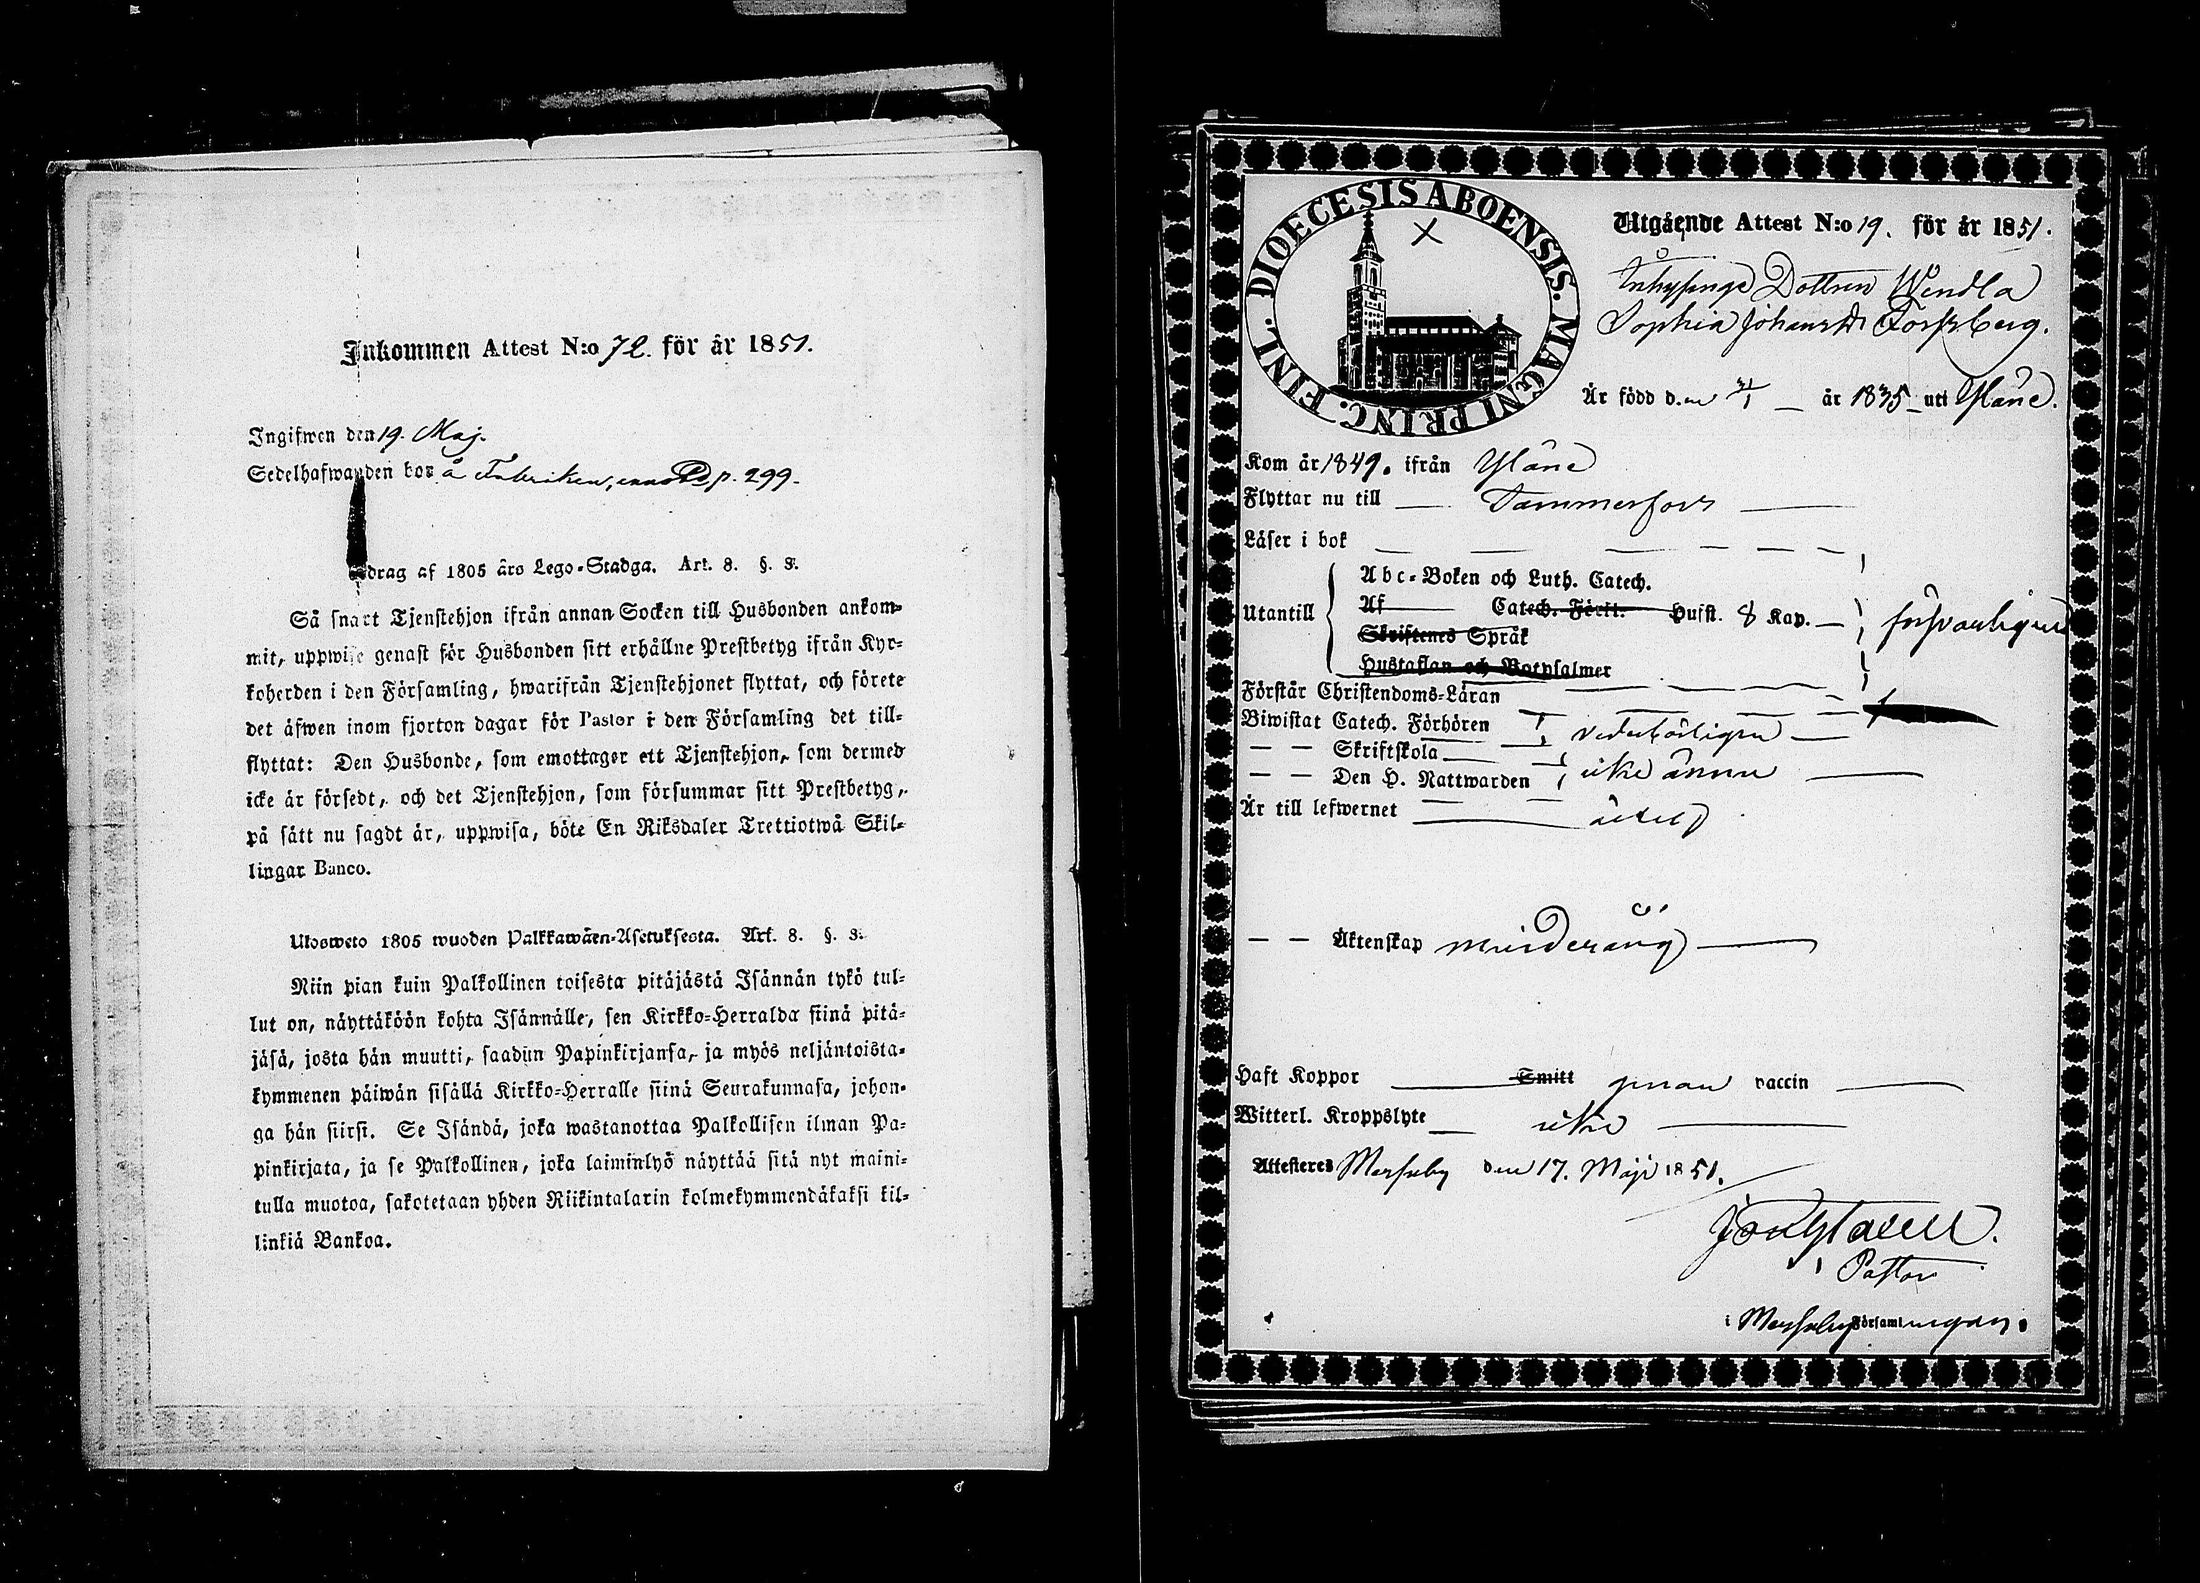 Inkommen Attest N:o 72. för år 1851.
Ingifwen den 19. Maj.
Sedelhafwanden bor å Fabriken, p. 299.
drag af 1805 års Lego-Stadga. Art. 8. §. 3.
Så snart Tjenstehjon ifrån annan Socken till Husbonden ankom-
mit, uppwise genast för Husbonden sitt erhållne Prestbetyg ifrån Kyr-
koherden i den Församling, hwarifrån Tjenstehjonet flyttat, och förete
det äfwen inom fjorton dagar för Pastor i den Församling det till-
flyttat: Den Husbonde, som emottager ett Tjenstehjon, som dermed
icke är försedt, och det Tjenstehjon, som försummar sitt Prestbetyg,
på sätt nu sagdt är, uppwisa, böte En Riksdaler Trettiotwå Skil-
lingar Banco.
Ulosweto 1805 wuoden Palkkawäen-Asetuksesta. Art. 8. §. 3.
Niin pian kuin Palkollinen toisesta pitäjästä Isännän tykö tul-
lut on, näyttäköön kohta Isännälle, sen Kirkko-Herralda siinä pitä-
jäsä, josta hän muutti, saadun Papinkirjansa, ja myös neljäntoista-
kymmenen päiwän sisällä Kirkko-Herralle siinä Seurakunnasa, johon-
ga hän siirsi. Se Isändä, joka wastanottaa Palkollisen ilman Pa-
pinkirjata, ja se Palkollinen, joka laiminlyö näyttää sitä nyt maini-
tulla muotoa, sakotetaan yhden Riikintalarin kolmekymmendäkaksi kil-
linkiä Bankoa.
DIOECESIS ABOENSIS. MAGNI PRINC. FINL.
Utgående Attest N:o 19. för år 1851.
Inhysinge Dottren Wendla
Sophia Johansdr Forssberg.
Är född den 31/1 år 1835 uti Yläne.
Kom år 1849. ifrån Yläne
Flyttar nu till Tammerfors
Läser i bok
Utantill
Abc-Boken och Luth. Catech.
Af Catech. Förkl. Hufst. 8 Kap.
Skriftenes Språk
Hustaflan och Botpsalmer
försvarligen
Förstår Christendoms-Läran
Biwistat Catech. Förhören vederbörligen
— — Skriftskola
— — Den H. Nattwarden icke ännu
Är till lefwernet
— — Äktenskap minderårig
Haft Koppor Smitt genom vaccin
Witterl. Kroppslyte icke
Attesteres Merseby den 17. Maji 1851.
Pastor
i Merseby Församlingen.